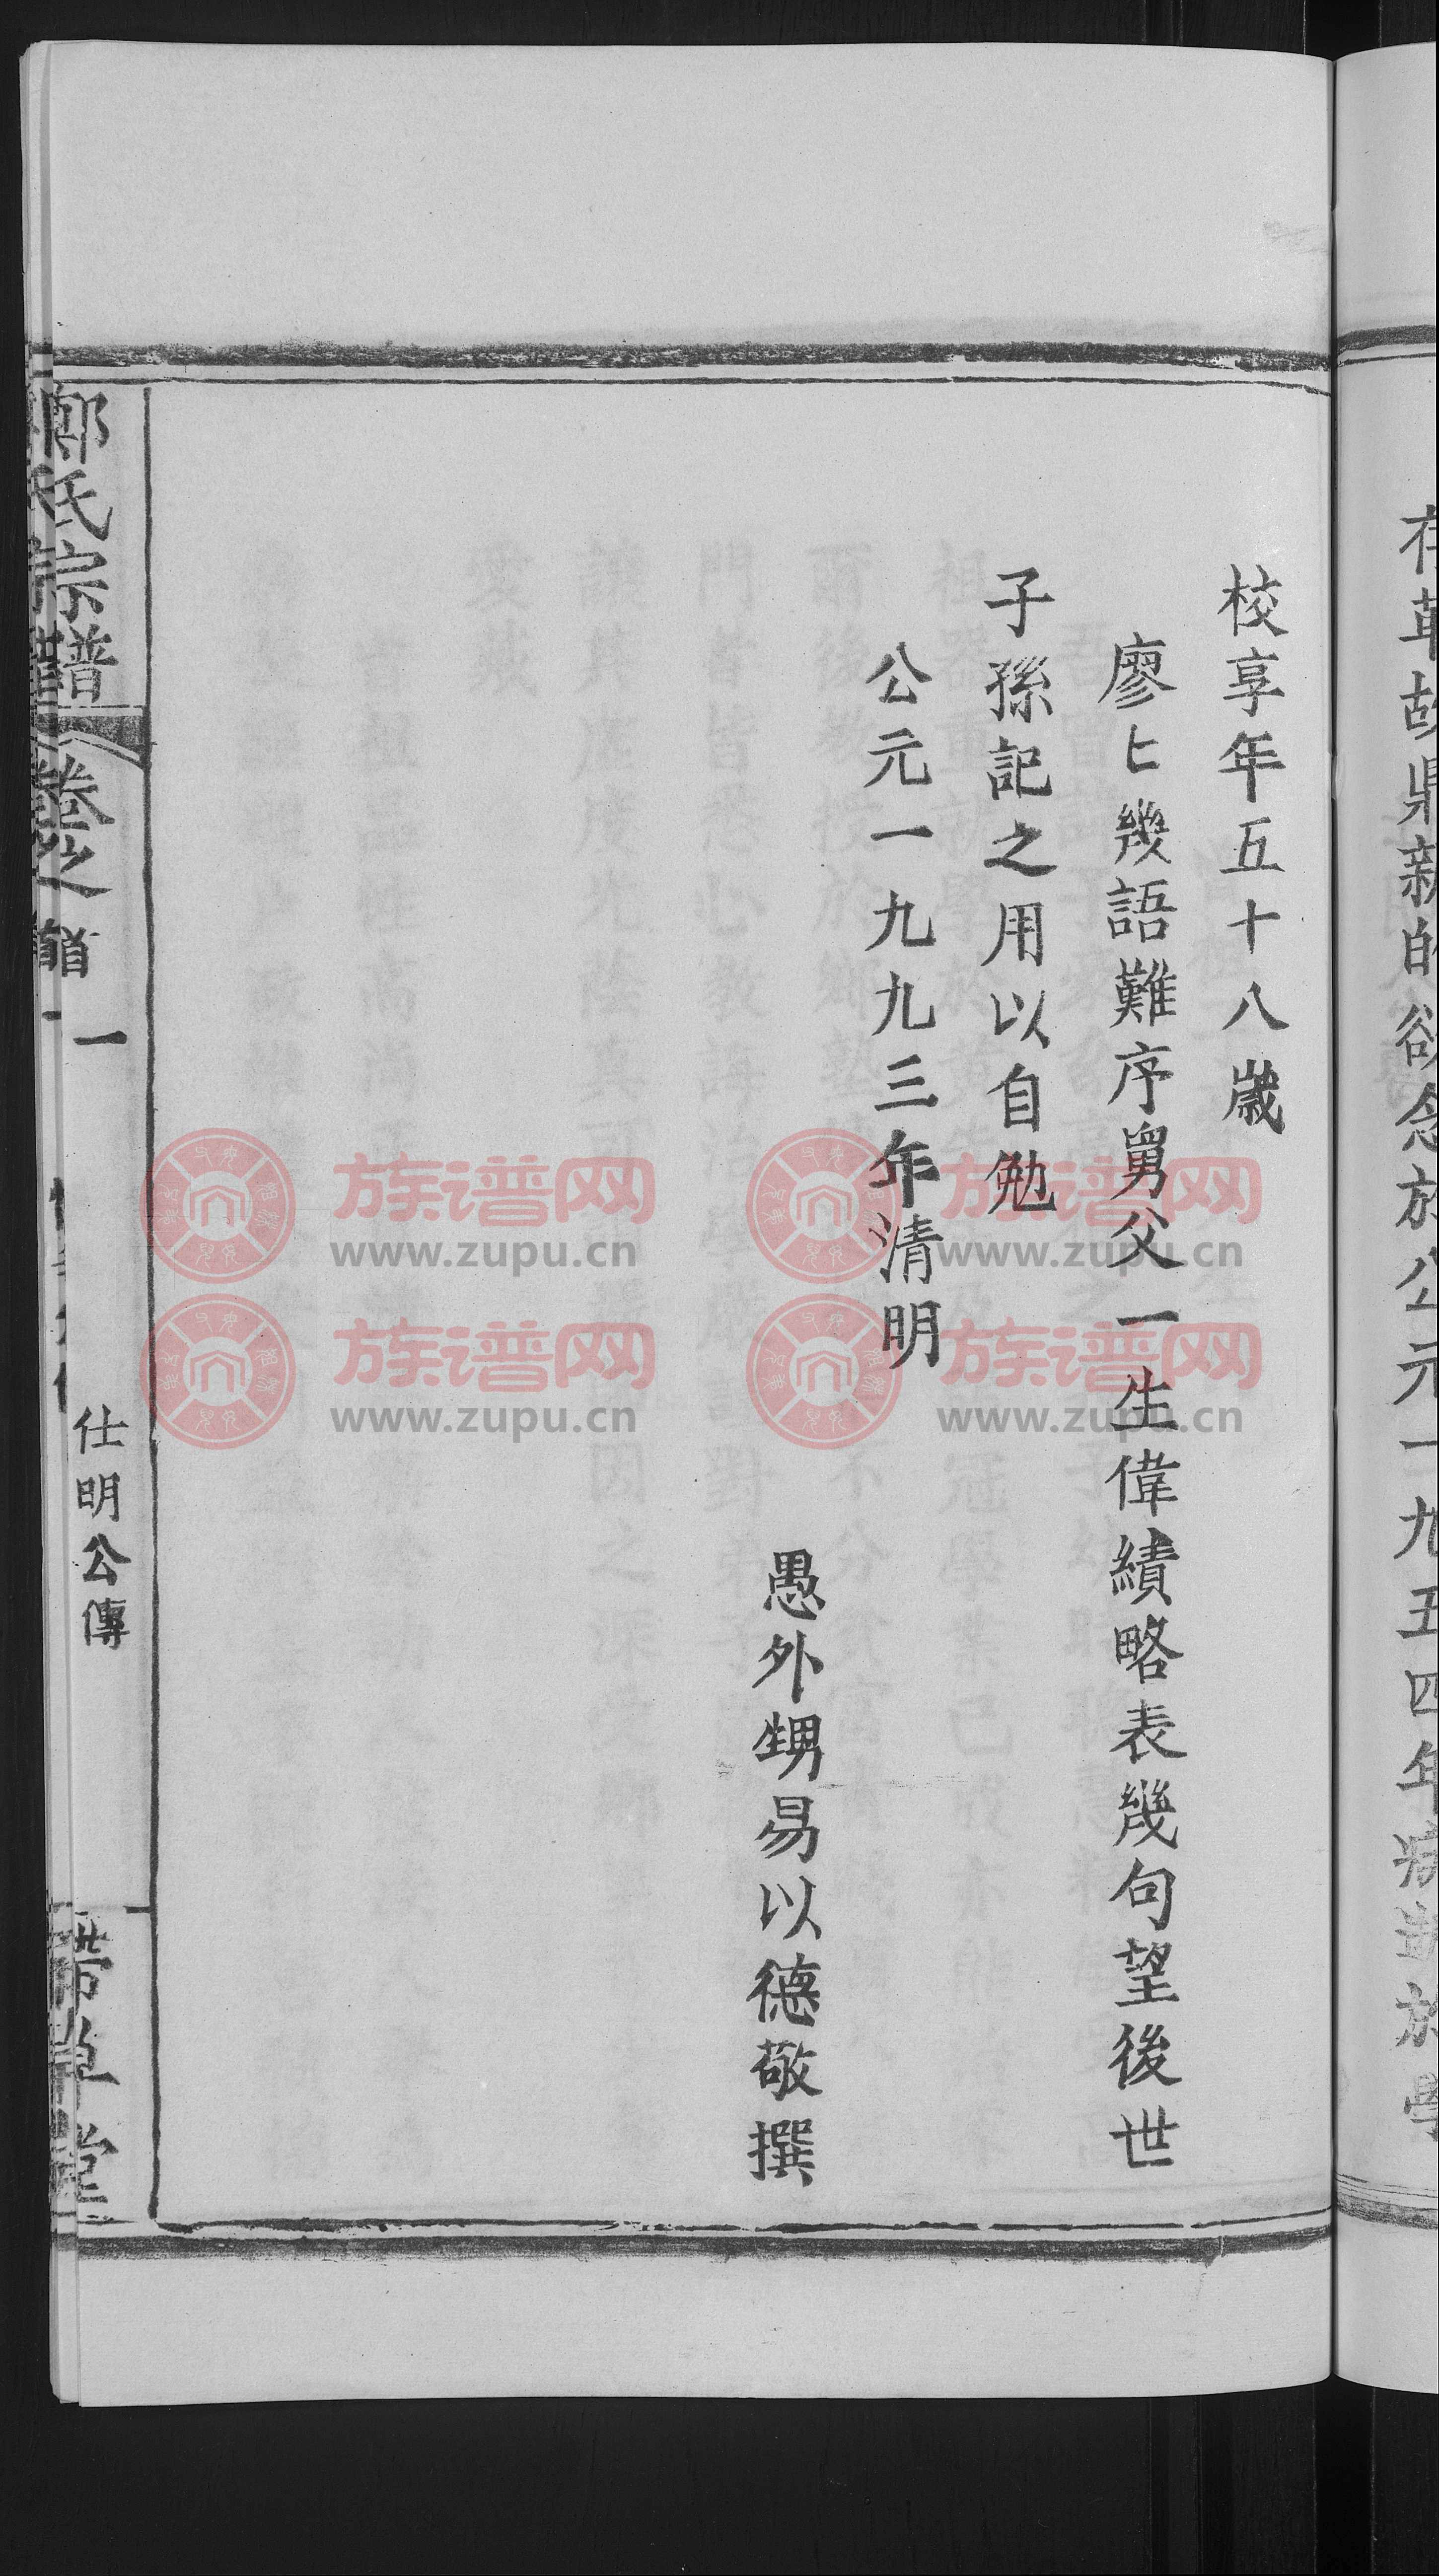 存革故鼎新的欲念於公元一九五四年病逝於學
校享年五十八歲
廖匕幾語難序舅父一生偉績略表幾句望後世
子孫記之用以自勉
公元一九九三年清明
愚外甥易以德敬撰
鄭氏宗譜 卷之首 一 仕明公傳 帶草堂
族谱网
www.zupu.cn
族谱网
www.zupu.cn
族谱网
www.zupu.cn
族谱网
www.zupu.cn